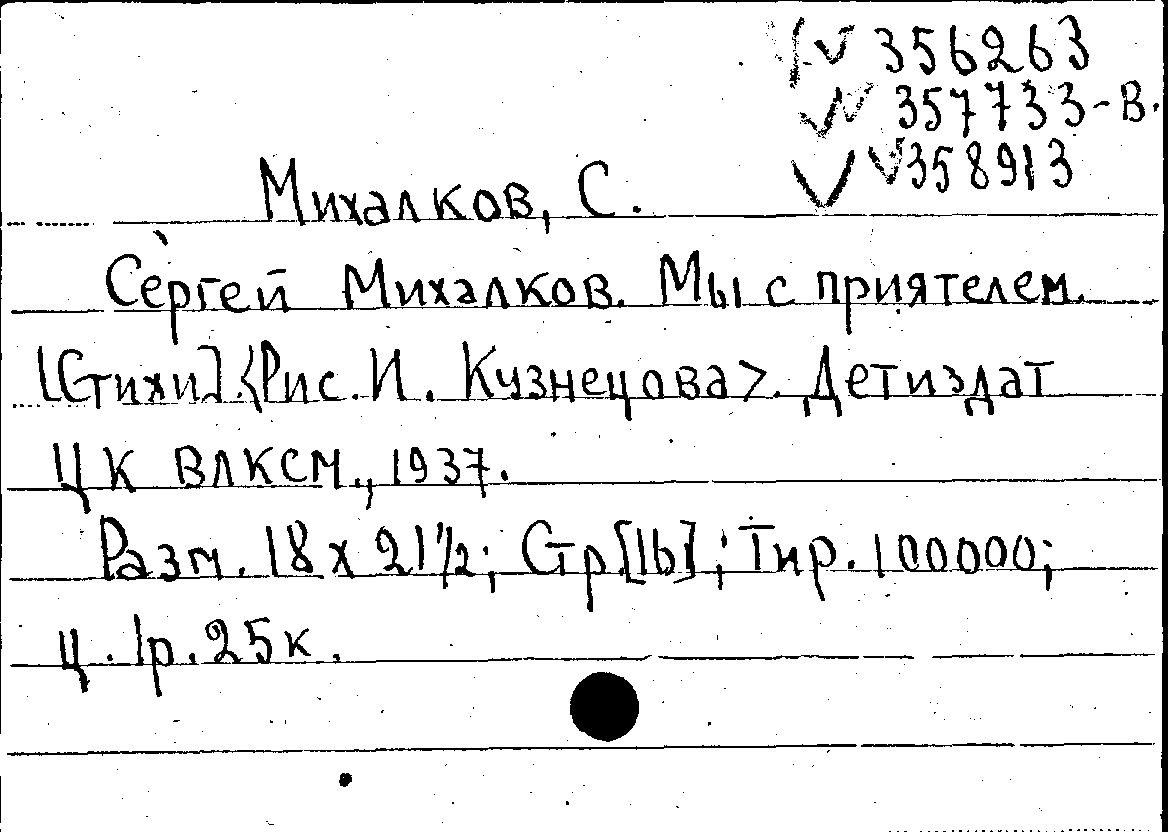 356263
357733-В.
358913
Михалков, С.
Сергей Михалков. Мы с приятелем.
[Стихи]. <Рис. И. Кузнецова>. Детиздат
ЦК ВЛКСМ., 1937.
Разм. 18 х 21 1/2; Стр. [16]; Тир. 100000;
ц. 1р. 25к.